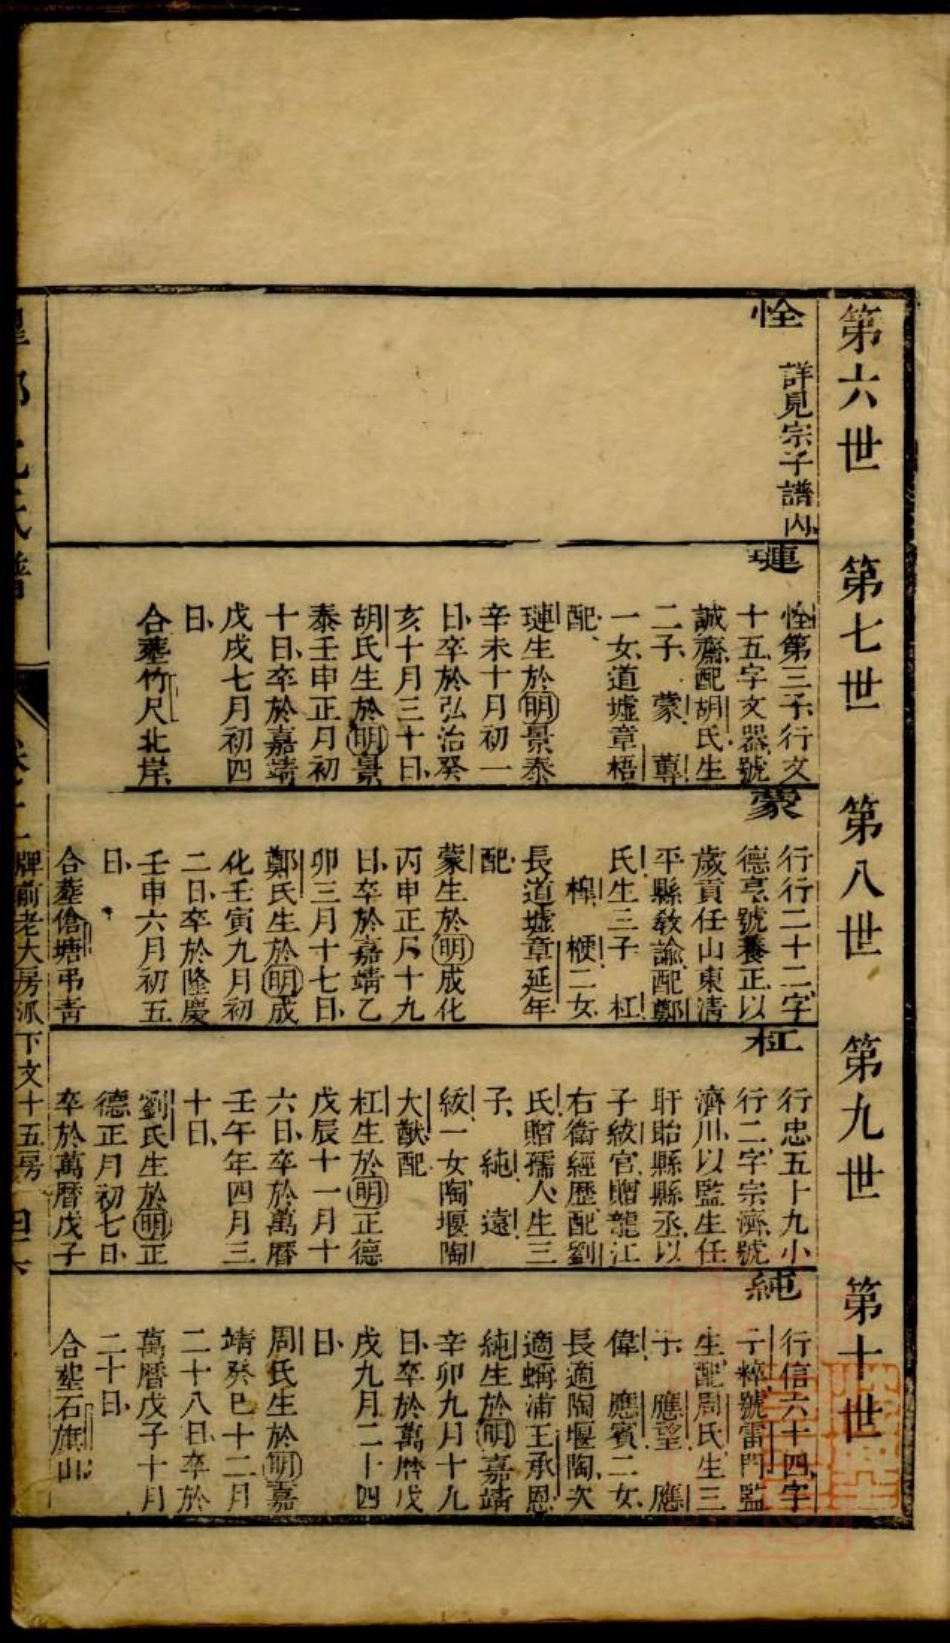 第六世
第七世
第八世
第九世
第十世
恮
詳見宗子譜內
璉
恮第三子行文
十五字文器號
誠齋配胡氏生
二子 蒙 蓴
一女道墟章梧
配
璉生於明景泰
辛未十月初一
日卒於弘治癸
亥十月三十日
胡氏生於明景
泰壬申正月初
十日卒於嘉靖
戊戌七月初四
日
合塟竹尺北岸
蒙
行行二十二字
德亨號養正以
歲貢任山東清
平縣敎諭配鄭
氏生三子 杠
槹 梗二女
長道墟章延年
配
蒙生於明成化
丙申正月十九
日卒於嘉靖乙
卯三月十七日
鄭氏生於明成
化壬寅九月初
二日卒於隆慶
壬申六月初五
日
合塟傖塘弔青
杠
行忠五十九小
行二字宗濟號
濟川以監生任
盱眙縣縣丞以
子紱官贈龍江
右衛經歷配劉
氏贈孺人生三
子 純 遠
紱一女陶堰陶
大猷配
杠生於明正德
戊辰十一月十
六日卒於萬曆
壬午年四月三
十日
劉氏生於明正
德正月初七日
卒於萬曆戊子
純
行信六十四字
子粹號雷門監
生配周氏生三
子 應望 應
偉 應賓二女
長適陶堰陶次
適蟶浦王承恩
純生於明嘉靖
辛卯九月十九
日卒於萬曆戊
戌九月二十四
日
周氏生於明嘉
靖癸巳十二月
二十八日卒於
萬曆戊子十月
二十日
合塟石旗山
氏譜
牌前老大房派
下文十五房